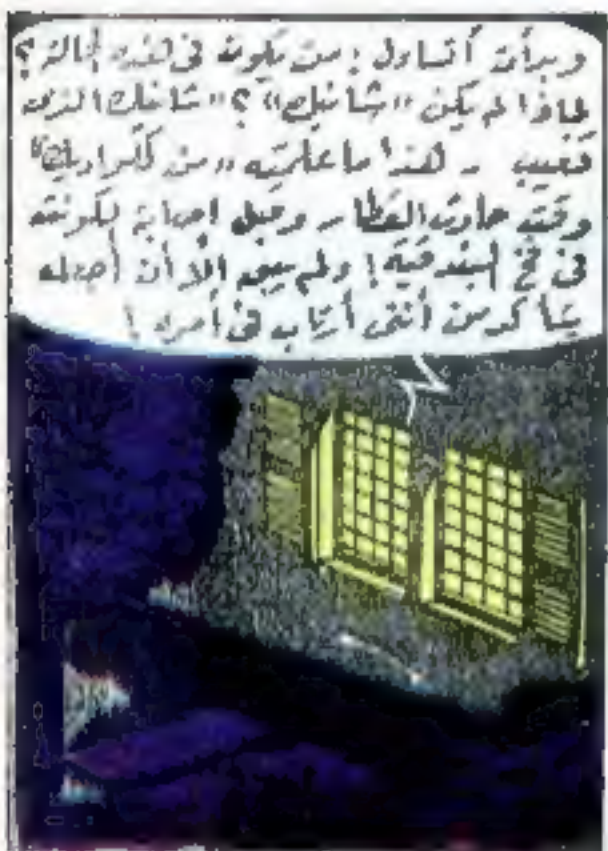 وبدأت أتساءل : من تكون فى هذه الحالة ؟
لماذا لم يكن "شانيك" ؟ "شانيك" الذى
تغيب - هذا ما علمته "من كلراديك"
وقت حادث القطار - وقبل إصابة لكونته
فى فخ البندقية ! ولم يبق إلا أن أجعله
يتأكد من أننى أرتاب فى أمره !